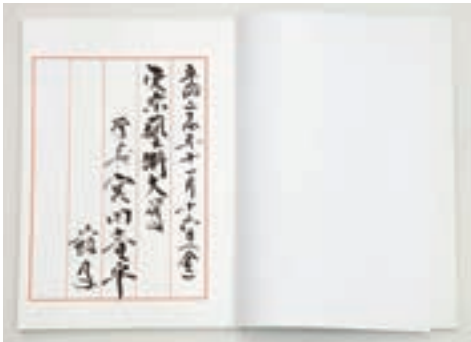 平成 年十一月十六日(金)
東京藝術大学
学長 宮田亮平